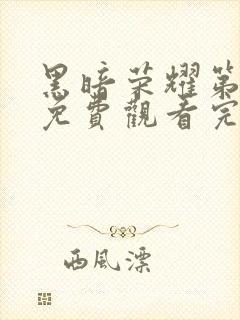 黑暗荣耀第
免費觀看完
西風漂